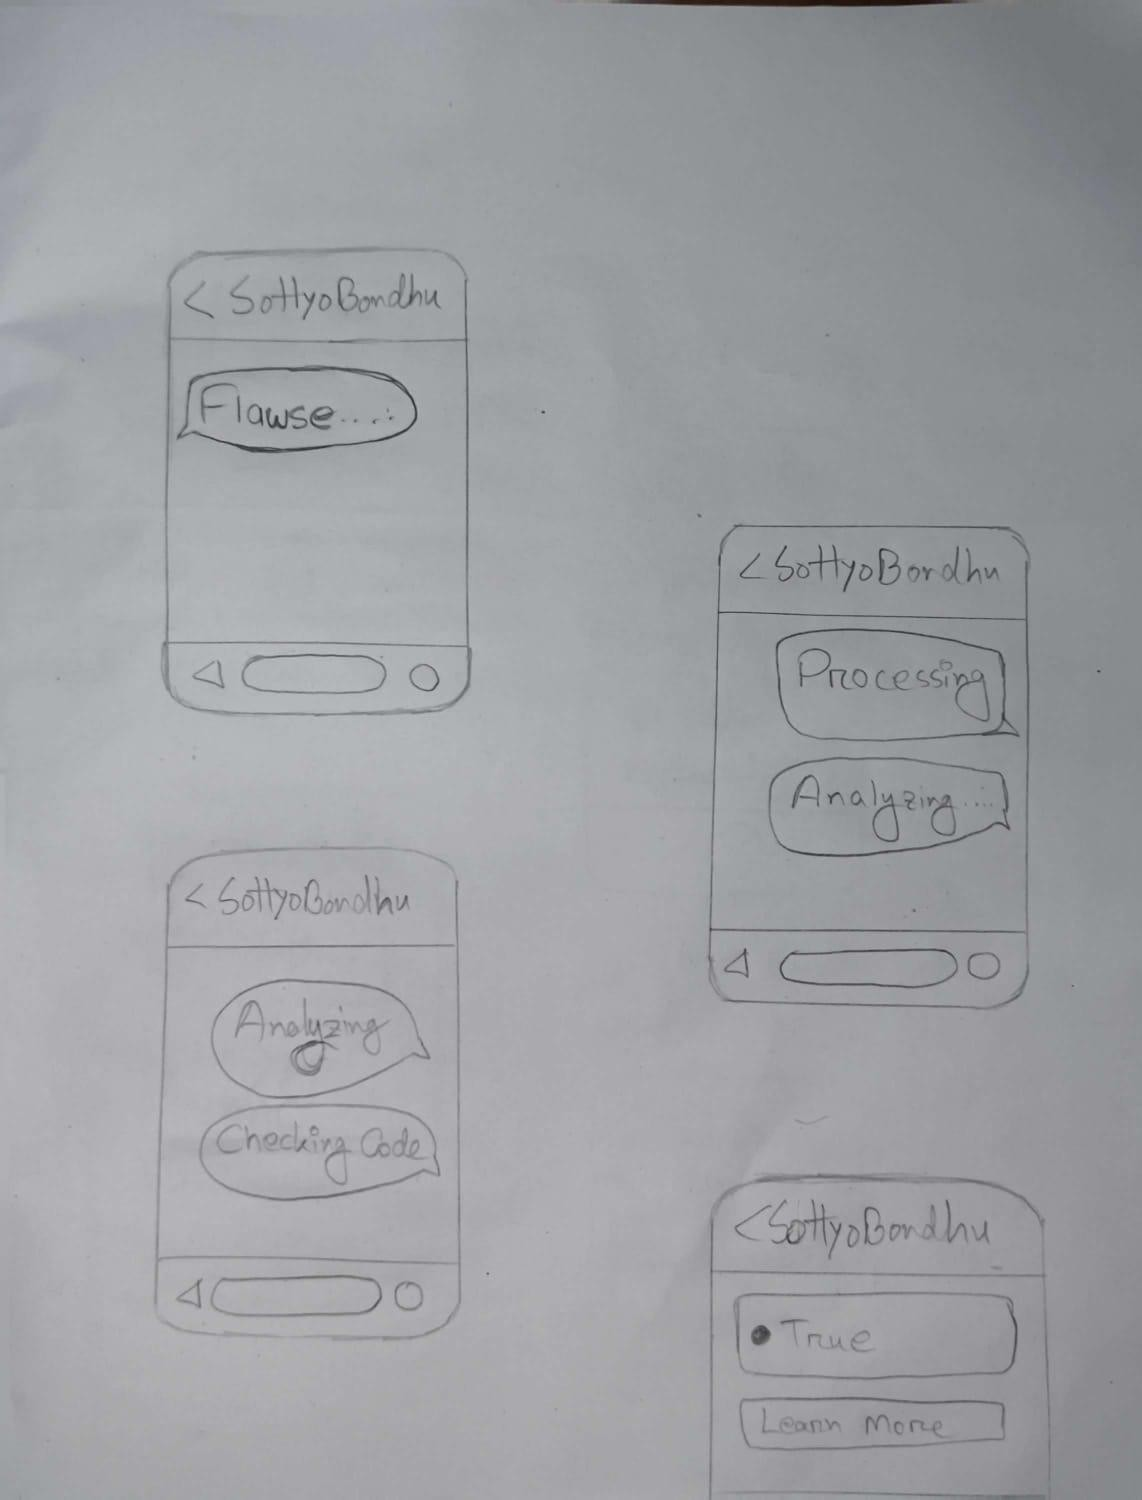 < SottyoBondhu
Flawse.....
< SottyoBondhu
Processing
Analyzing.....
< SottyoBondhu
Analyzing
Checking Code
< SottyoBondhu
True
Learn More